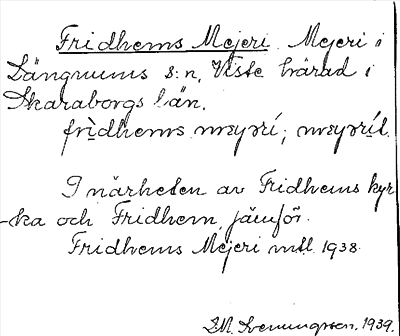 Fridhems Mejeri. Mejeri i
Längnums s:n, Viste härad i
Skaraborgs län.
frìdhems mɛyɘrí; mɛyɘrít.
I närheten av Fridhems kyr
-ka och Fridhem, jämför.
Fridhems Mejeri mtl. 1938.
I.M. Svenungsson. 1939.